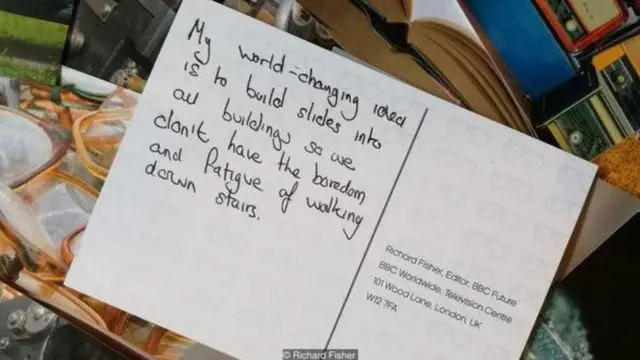 My world-changing idea
is to build slides into
all buildings so we
don't have the boredom
and fatigue of walking
down stairs.
Richard Fisher, Editor, BBC Future
BBC Worldwide, Television Centre
101 Wood Lane, London, UK
W12 7FA
© Richard Fisher